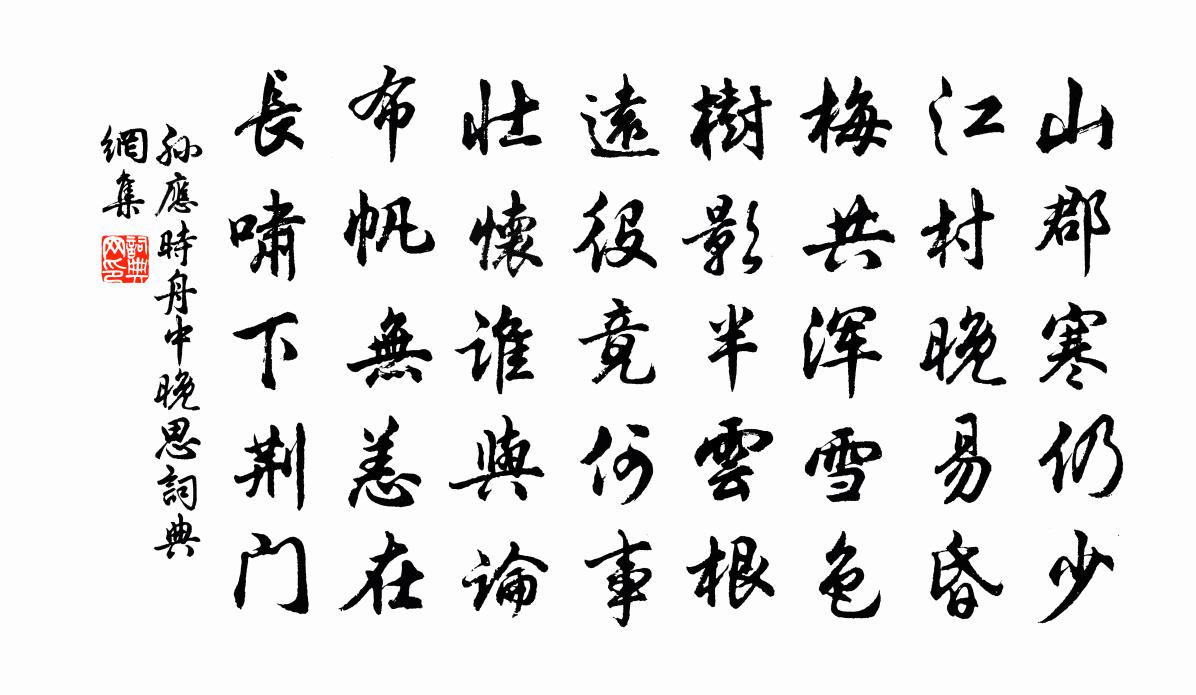 山郡寒仍少
江村晚易昏
梅共渾雪色
樹影半雲根
遠役竟何事
壯懷誰與論
布帆無恙在
長嘯下荆门
孫應時舟中晚思詞典
網集
詞典
网印